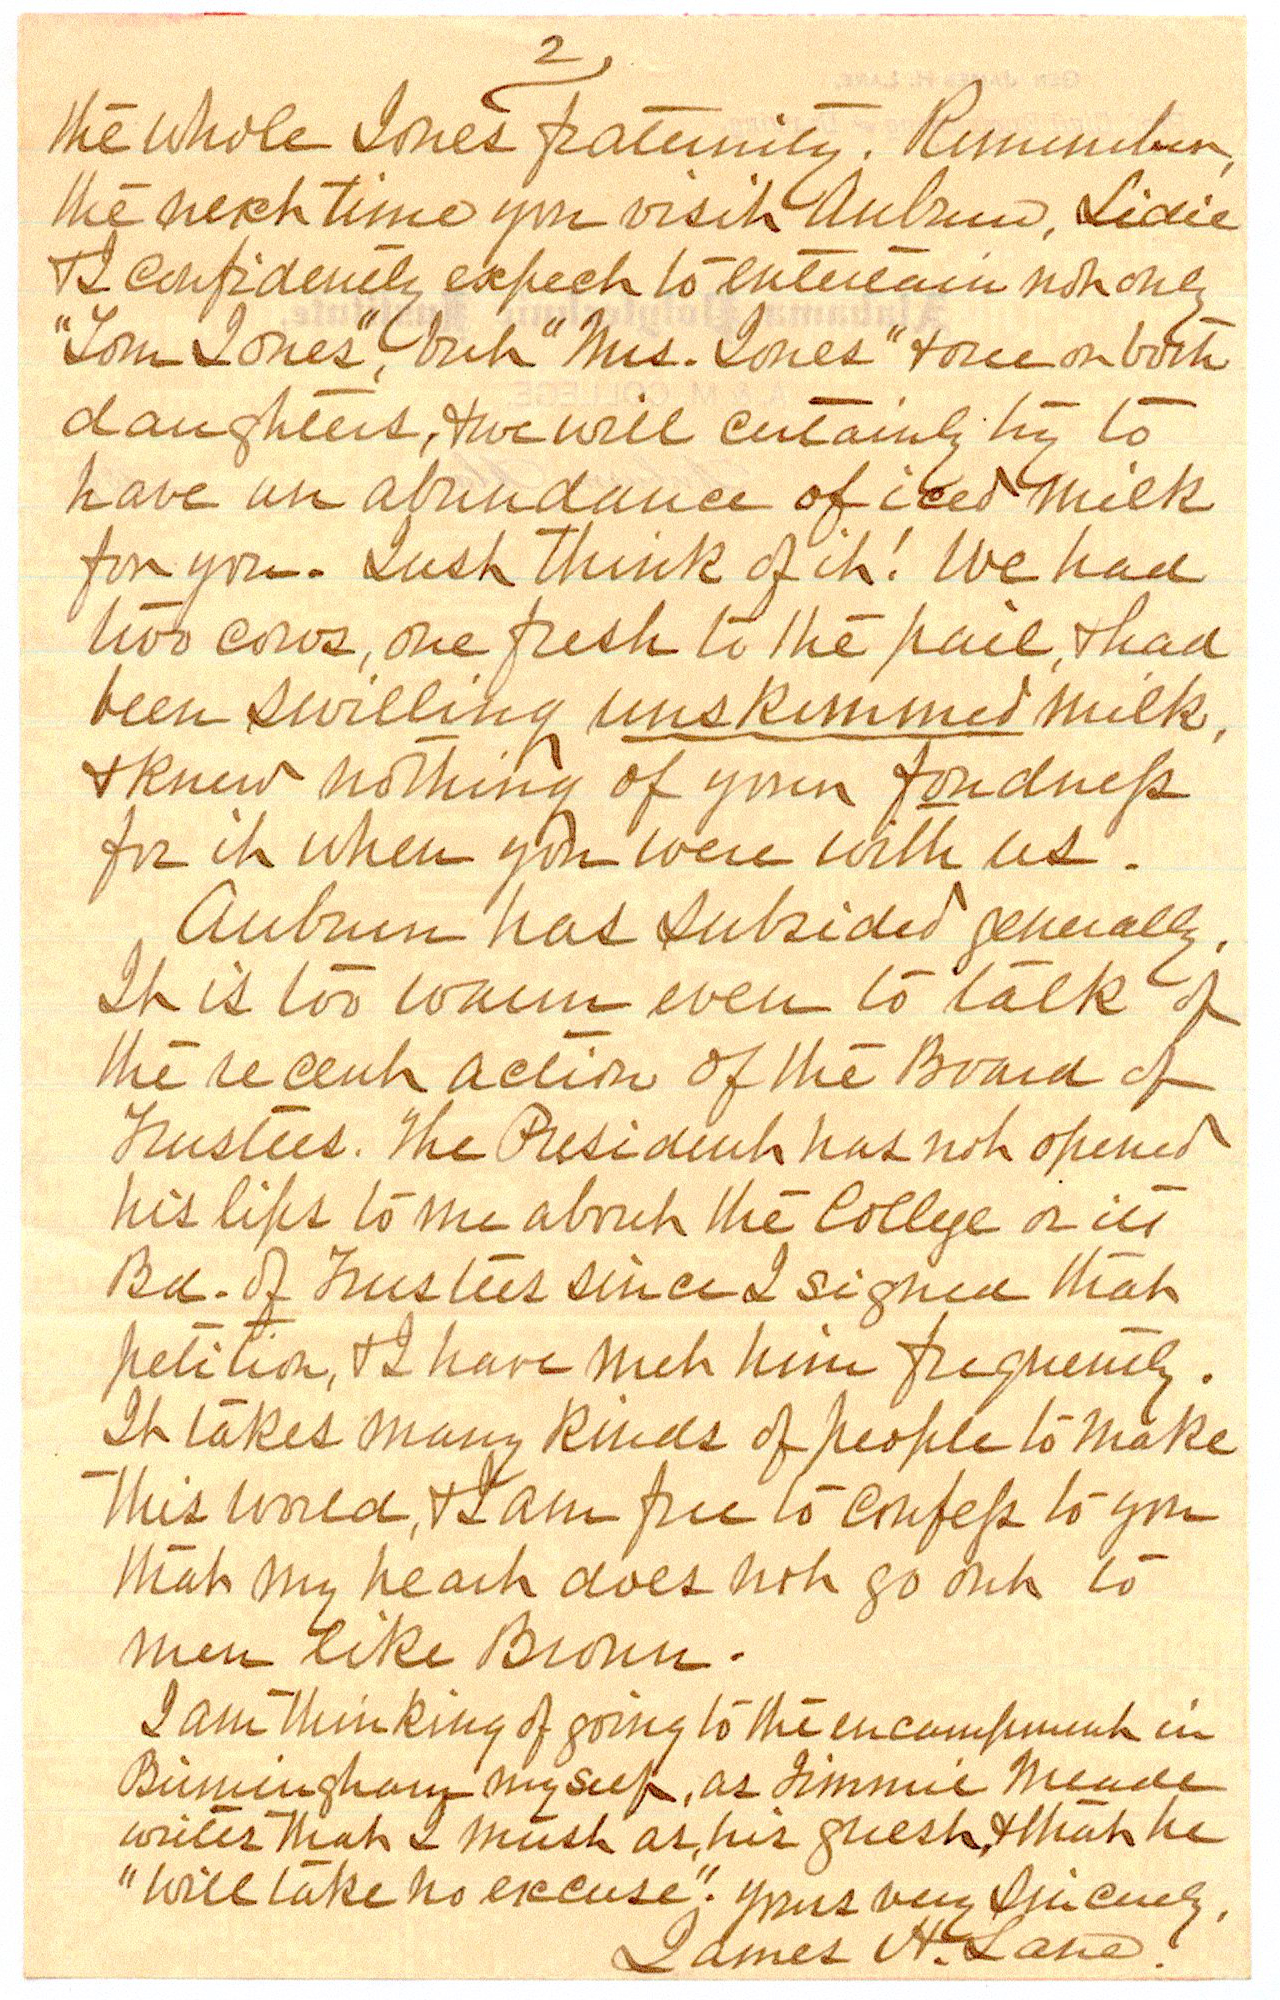 2,
the whole Jones fraternity. Remember,
the next time you visit Auburn, Lidie
& I confidently expect to entertain not only
"Tom Jones", but "Mrs. Jones" & one or both
daughters, & we will certainly try to
have an abundance of iced milk
for you. Just think of it! We had
two cows, one fresh to the pail, & had
been swilling unskimmed milk,
& knew nothing of your fondness
for it when you were with us.
Auburn has subsided generally.
It is too warm even to talk of
the recent action of the Board of
Trustees. The President has not opened
his lips to me about the College or its
Bd. of Trustees since I signed that
petition, & I have met him frequently.
It takes many kinds of people to make
this world, & I am free to confess to you
that my heart does not go out to
men like Broun.
I am thinking of going to the encampment in
Birmingham myself, as Jimmie Meade
writes that I must as his guest, & that he
"will take no excuse". Yours very sincerely,
James H. Lane.